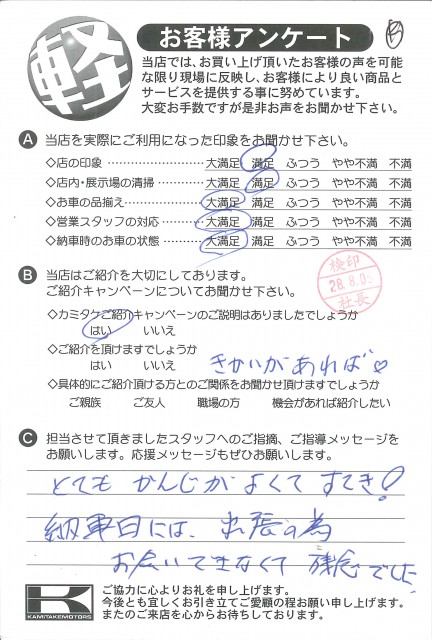 軽
お客様アンケート
当店では、お買い上げ頂いたお客様の声を可能
な限り現場に反映し、お客様により良い商品と
サービスを提供する事に努めています。
大変お手数ですが是非お声をお聞かせ下さい。
A 当店を実際にご利用になった印象をお聞かせ下さい。
◇店の印象 ………………… 大満足 満足 ふつう やや不満 不満
◇店内・展示場の清掃 ………… 大満足 満足 ふつう やや不満 不満
◇お車の品揃え ……………… 大満足 満足 ふつう やや不満 不満
◇営業スタッフの対応 ………… 大満足 満足 ふつう やや不満 不満
◇納車時のお車の状態 ………… 大満足 満足 ふつう やや不満 不満
検印
28.8.05
社長
B 当店はご紹介を大切にしてあります。
ご紹介キャンペーンについてお聞かせ下さい。
◇カミタケご紹介キャンペーンのご説明はありましたでしょうか
はい いいえ
◇ご紹介を頂けますでしょうか
はい いいえ きかいがあれば♡
◇具体的にご紹介頂ける方とのご関係をお聞かせ頂けますでしょうか
ご親族 ご友人 職場の方 機会があれば紹介したい
C 担当させて頂きましたスタッフへのご指摘、ご指導メッセージを
お願いします。応援メッセージもぜひお願いします。
とても かんじが よくて すてき!
納車日には、出張の為
お会いできなくて 残念でした。
K
KAMITAKEMOTORS
ご協力に心よりお礼を申し上げます。
今後とも宜しくお引き立てご愛顧の程お願い申し上げます。
またのご来店を心からお待ちしております。